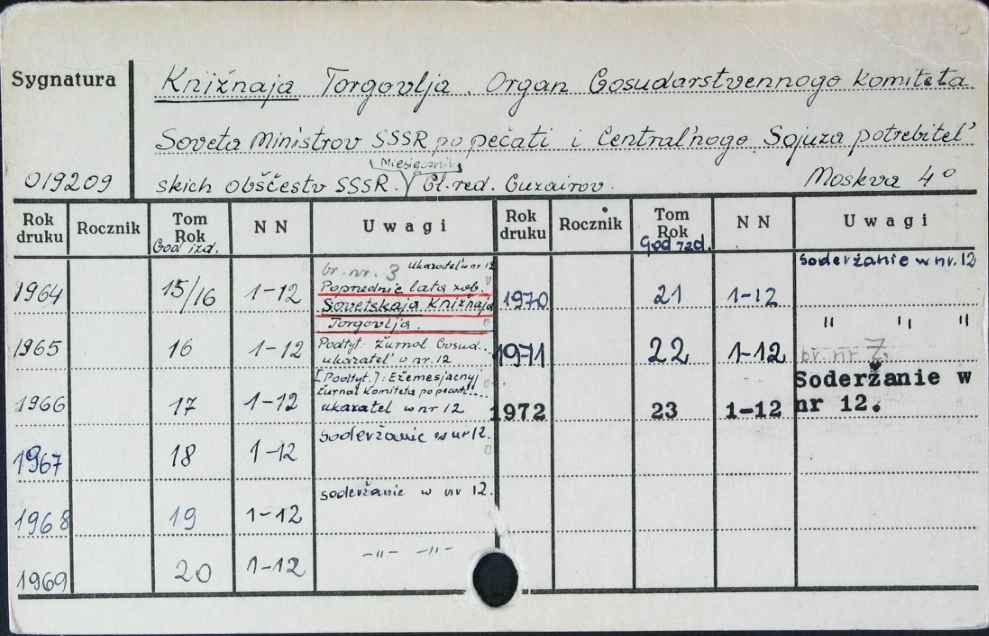 Sygnatura
Knižnaja Torgovlja. Organ Gosudarstvennogo komiteta
Soveta Ministrov SSSR po pečati i Central'nogo Sojuza potrebitel'
(Miesięcznik)
019209
skich obščestv SSSR. Gl. red. Guzairov. Moskva 4°
Rok druku Rocznik Tom Rok God izd. N N Uwagi
1964 15/16 1-12 br. nr. 3 ukazatel' w nr 12
Poprzednie lata zob.
Sovetskaja Knižnaja
Torgovlja.
1965 16 1-12 Podtyt. Žurnal Gosud...
ukazatel' v nr. 12
1966 17 1-12 [Podtyt.]: Ežemesjacnyj
žurnal Komiteta po pečati...
ukazatel w nr 12
1967 18 1-12 soderžanie w nr 12.
1968 19 1-12 soderžanie w nr 12.
1969 20 1-12 -"- -"-
Rok druku Rocznik Tom Rok God izd. N N Uwagi
soderžanie w nr. 12
1970 21 1-12
" " "
1971 22 1-12 br. nr 7.
1972 23 1-12 Soderžanie w
nr 12.